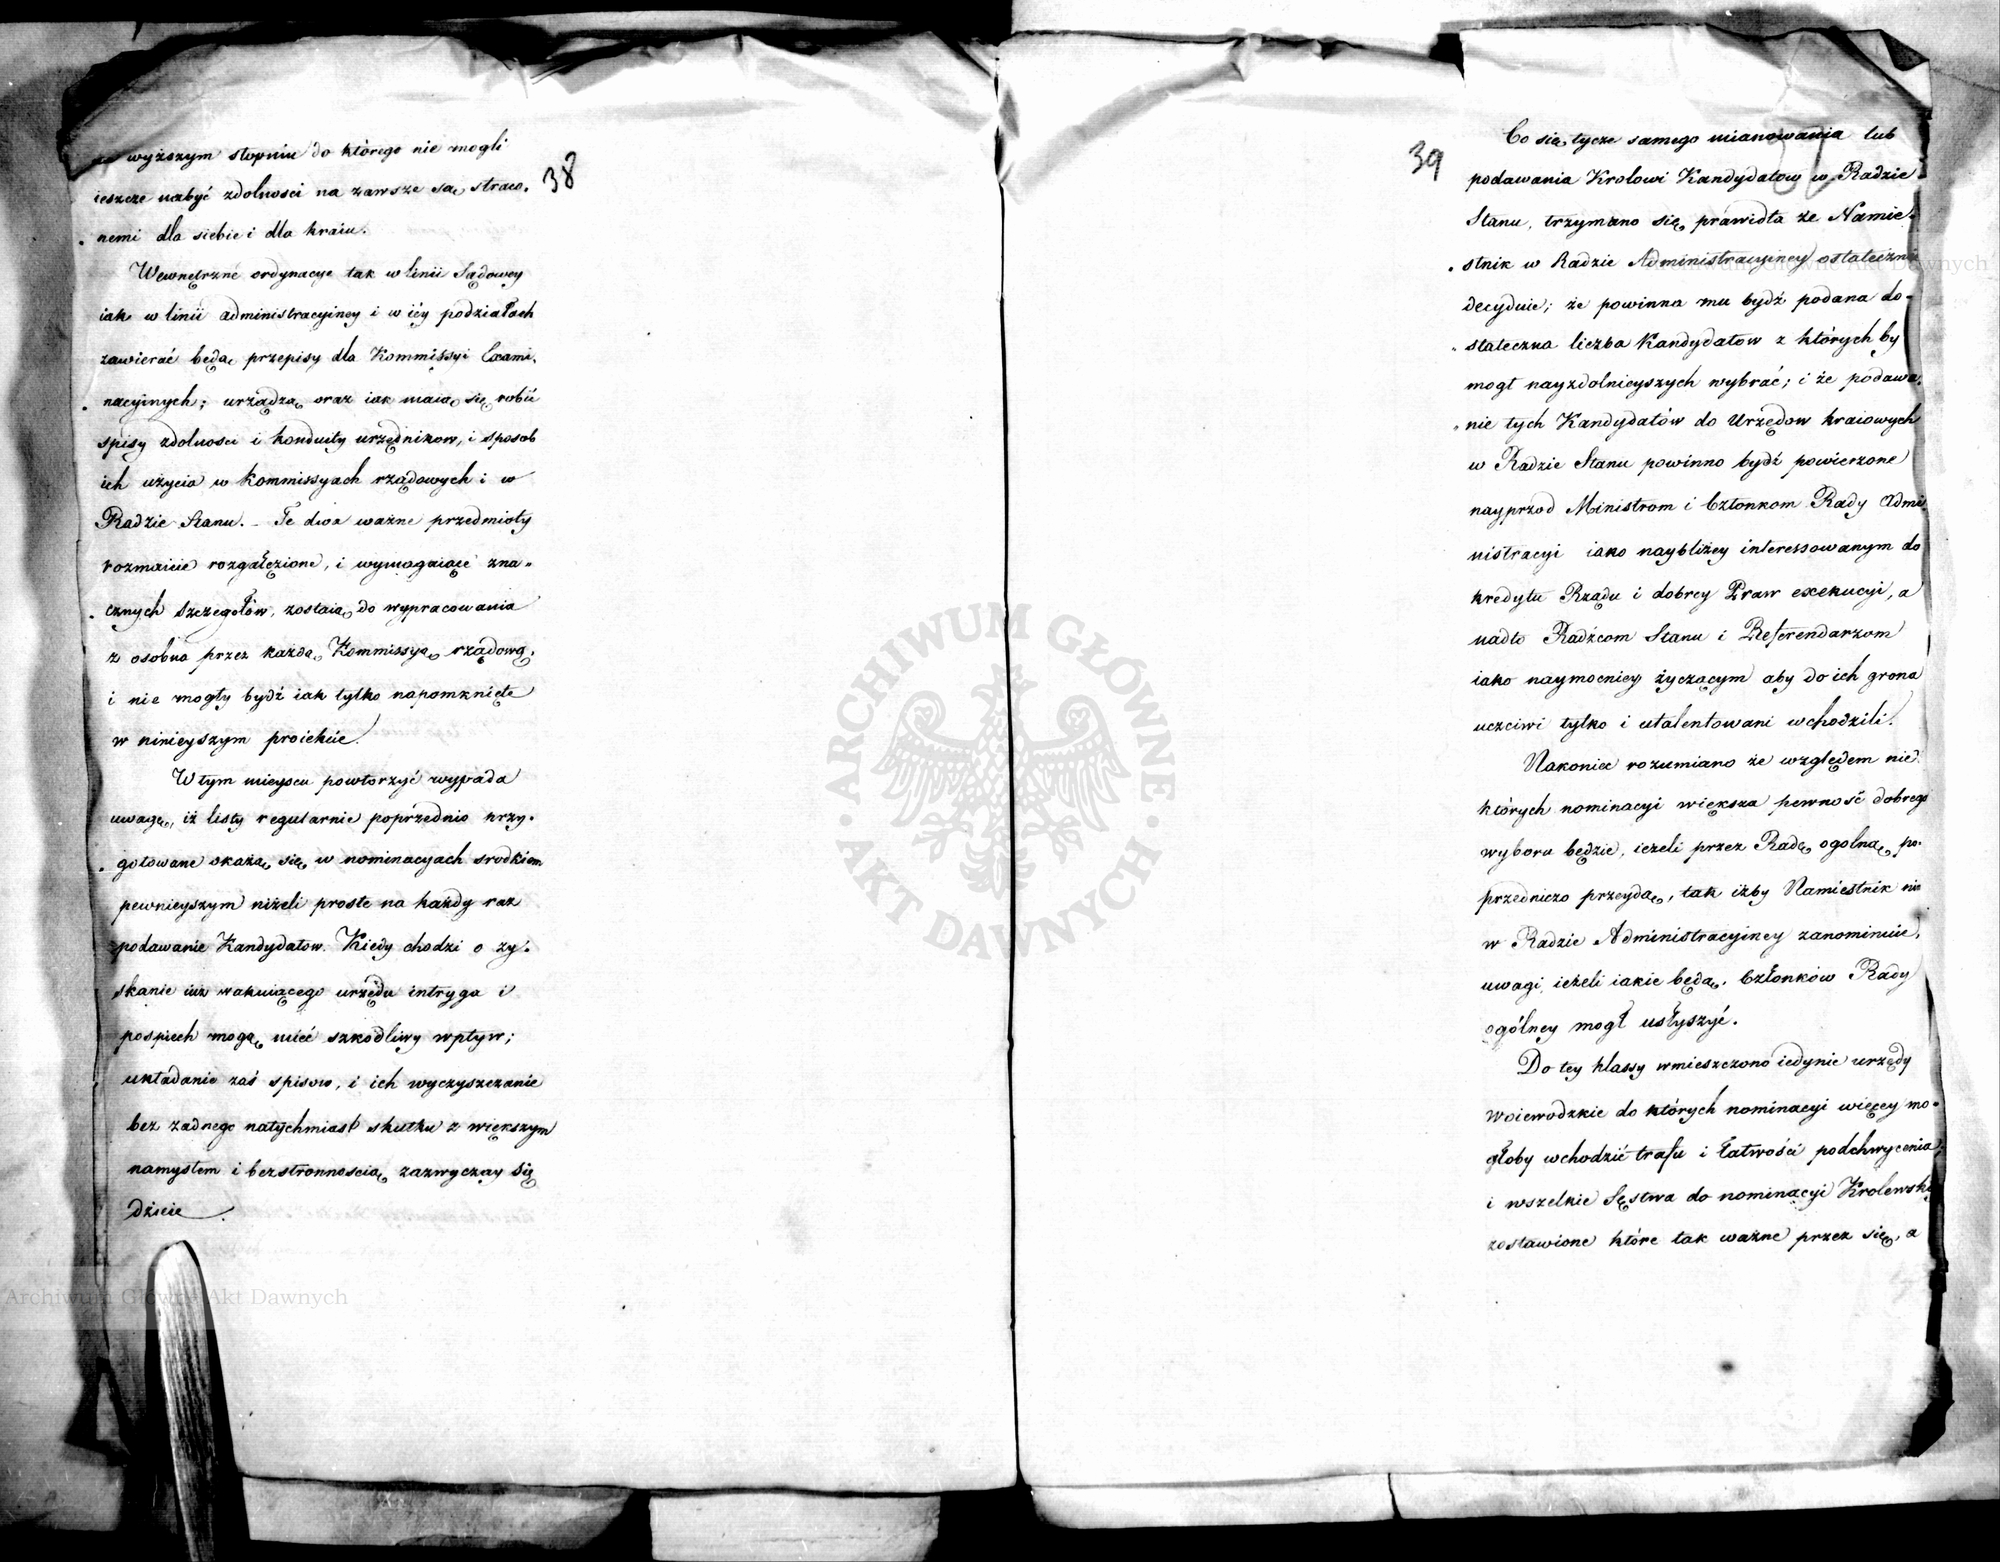 38
wyższym stopniu do którego nie mogli
ieszcze nabyć zdolności na zawsze są straco-
nemi dla siebie i dla kraiu.
Wewnętrzne ordynacye tak w linii Sądowey
iak w linii administracyiney i w iéy podziałach
zawierać będą przepisy dla Kommissyi Exami-
nacyinych; urządzą oraz iak maią się robić
spisy zdolnosci i konduity urzędnikow, i sposob
ich użycia w Kommissyach rządowych i w
Radzie Stanu. – Te dwa ważne przedmioty
rozmaicie rozgałęzione, i wymagaiące zna-
cznych szczegołów, zostaią do wypracowania
z osobna przez każdą Kommissyą rządową,
i nie mogły bydź iak tylko napomknięte
w ninieyszym proiekcie.
W tym mieyscu powtorzyć wypada
uwagę, iż listy regularnie poprzednio przy-
gotowane okażą się w nominacyach srodkiem
pewnieyszym niżeli proste na każdy raz
podawanie Kandydatow. Kiedy chodzi o zy-
skanie iuż wakuiącego urzędu intryga i
pospiech mogą mieć szkodliwy wpływ;
układanie zaś spisow, i ich wyczyszczanie
bez żadnego natychmiast skutku z większym
namysłem i bezstronnoscią zazwyczay się
dzieie.
39
Co się tycze samego mianowania lub
podawania Krolowi Kandydatow w Radzie
Stanu, trzymano się prawidła że Namie-
stnik w Radzie Administracyiney ostatecznie
decyduie; że powinna mu bydź podana do-
stateczna liczba Kandydatow z których by
mogł nayzdolnieyszych wybrać; i że podawa-
nie tych Kandydatów do Urzędow kraiowych
w Radzie Stanu powinno bydź powierzone
nayprzod Ministrom i Członkom Rady Admi-
nistracyi iako naybliżey interessowanym do
kredytu Rządu i dobrey Praw exekucyi, a
nadto Radźcom Stanu i Referendarzom
iako naymocniey życzącym aby do ich grona
uczciwi tylko i utalentowani wchodzili.
Nakoniec rozumiano że względem nie-
których nominacyi większa pewność dobrego
wyboru będzie, ieżeli przez Radę ogolną po-
przedniczo przeydą, tak iżby Namiestnik nim
w Radzie Administracyiney zanominuie,
uwagi ieżeli iakie będą, Członków Rady
ogólney mogł usłyszyć.
Do tey klassy wmieszczono iedynie urzędy
Woiewodzkie do których nominacyi więcey mo-
głoby wchodzić trafu i łatwości podchwycenia;
i wszelkie Sęstwa do nominacyi Krolewskiey
zostawione które tak ważne przez się, a
ARCHIWUM GŁÓWNE
AKT DAWNYCH
Archiwum Główne Akt Dawnych
Archiwum Główne Akt Dawnych